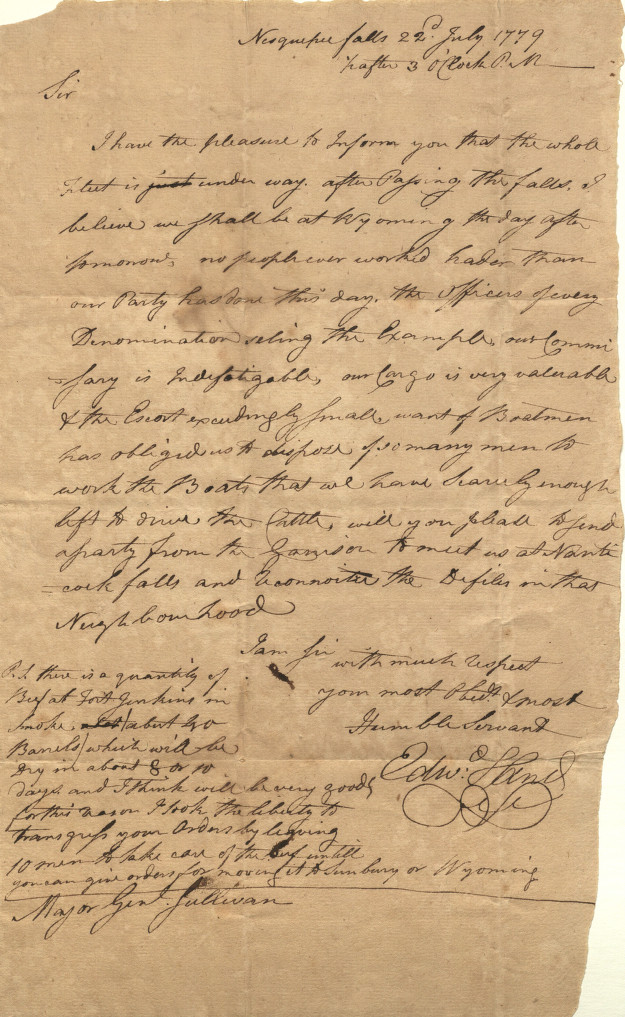 Nesquepee falls 22d. July 1779
½ after 3 O'Clock P.M
Sir
I have the pleasure to Inform you that the whole
Fleet is just under way. after Passing the falls. I
believe we shall be at Wyoming the day after
tomorrow, no people ever worked hader than
our Party has done this day. the Officers of every
Denomination seting the Example, our Commi
-sary is Indefatigable, our Cargo is very valerable
& the Escort exceedingly small, want of Boatmen
has obliged us to dispose of so many men to
work the Boats that we have scarcely enough
left to drive the Cattle, will you please to send
a party from the Garrison to meet us at Nanti
=cock falls and Reconnoiter the Defiles in that
Neighbourhood
I am Sir with much respect
your most Obedt. & most
Humble Servant
Edwd. Hand
P.S. there is a quantity of
Beef at Fort Jenkins in
Smoke, (about
Barrels) which will be
Dry in about 8 or 10
days and I think will be very good,
for this reason I took the liberty to
transgress your Orders by leaving
10 men to take care of the Beef untill
you can give orders for moving it to Sunbury or Wyoming
Major Genl. Sullivan